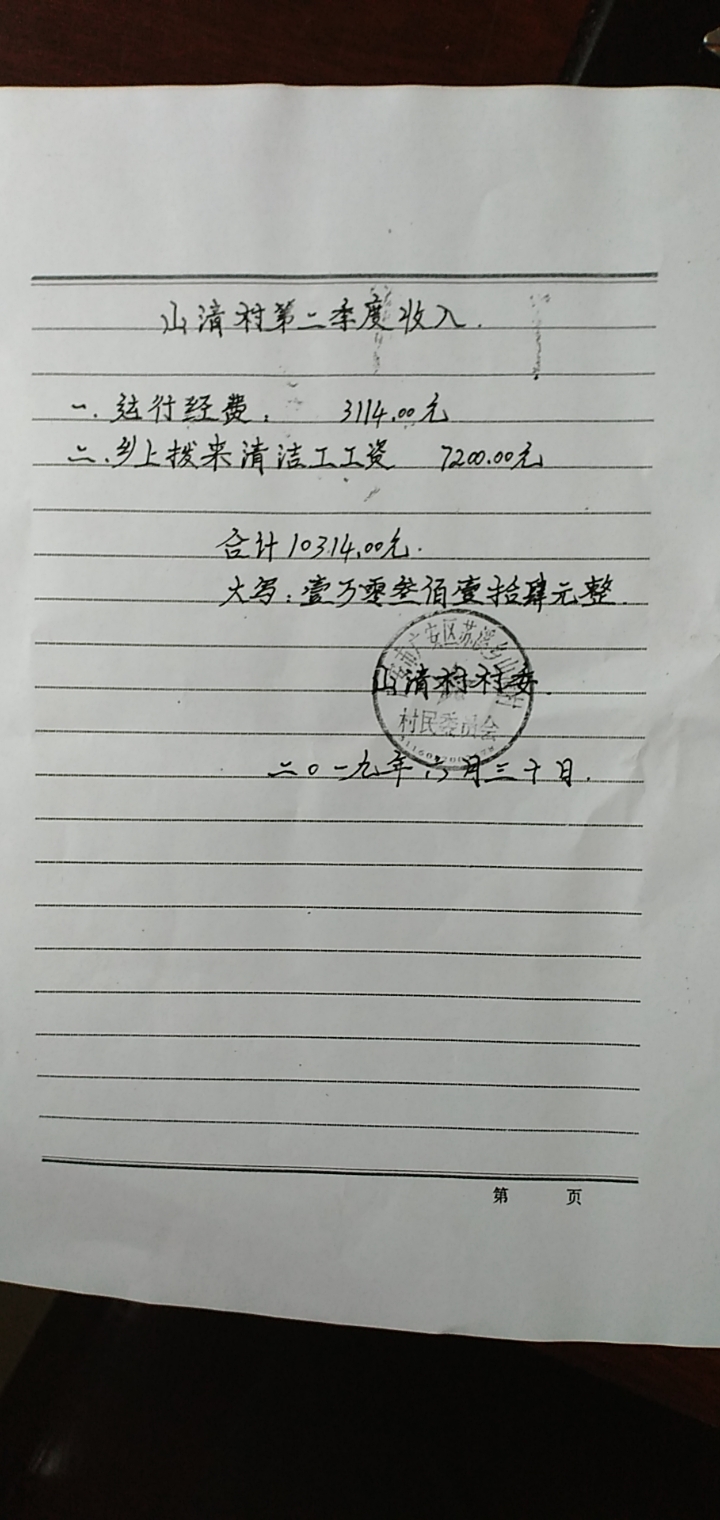 山清村第二季度收入.
一.运行经费: 3114.00元
二.乡上拨来清洁工工资 7200.00元
合计10314.00元.
大写:壹万零叁佰壹拾肆元整.
安市广安区苏溪乡山清村
山清村村委.
村民委员会
二〇一九年六月三十日.
第 页